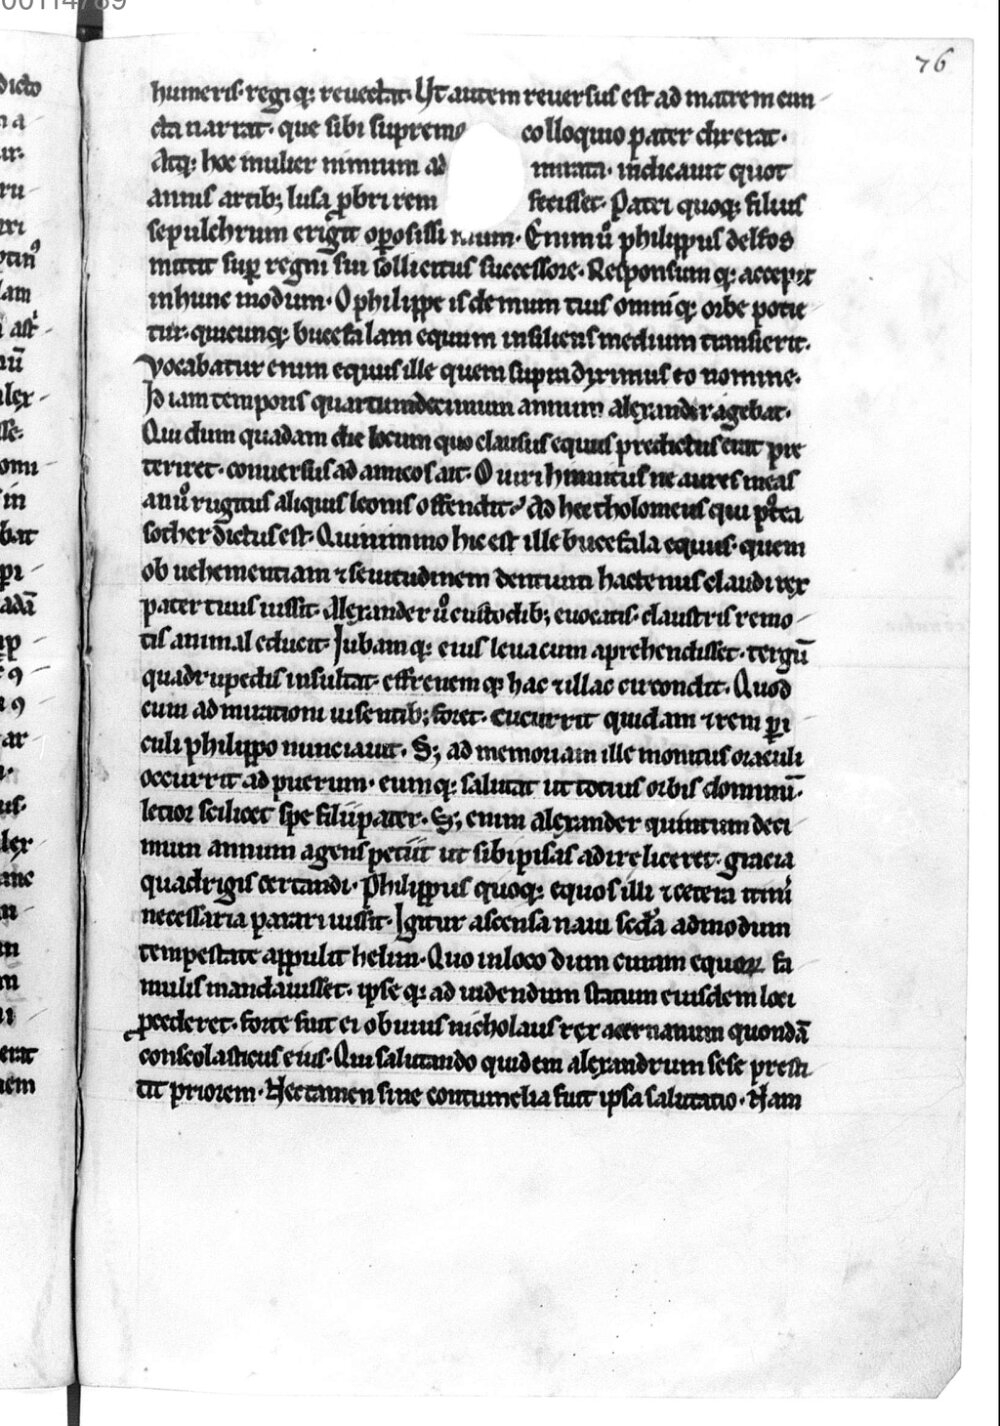 76
humeris· regiq; reuectat· Ut autem reuersus est ad matrem cun
cta narrat· que sibi supremo colloquio pater dixerat·
Atq; hoc mulier nimium ad mirata· indicauit quot
annis artib; lusa ꝓbri rem fecisset· Patri quoq; filius
sepulchrum erigit oꝑosissi mum· Enimu͛o philippus delfos
mittit suꝑ regni sui sollicitus successore· Responsum q; accepit
in hunc modum· O philippe is demum tuus omniq; orbe potie
tur· quicunq; bucefalam equum insiliens medium transierit·
Vocabatur enim equus ille quem supra diximus eo nomine·
Id iam temporis quartumdecimum annum alexander agebat·
Qui dum quadam die locum quo clausus equus predictus erat pre
teriret· conuersus ad amicos ait· O uiri hinnitus ne aures meas
an uͦ rugitus aliquis leonis offendit? Ad hec tholomeus qui postea
sother dictus est· Quinimmo hic est ille bucefala equus· quem
ob uehementiam ⁊ seuitudinem dentium hactenus claudi rex
pater tuus iussit· Alexander uͦ custodib; euocatis· claustris remo
tis animal educit· Iubamq; eius leua cum aprehendisset· tergū
quadrupedis insultat· effrenem q; hac ⁊ illac circondit· Quod
cum admirationi uisentib; foret· cucurrit quidam ⁊ rem ꝑi
culi philippo nunciauit· S; ad memoriam ille monitus oraculi
occurrit ad puerum· eumq; salutat ut totius orbis dominū·
letior scilicet spe filii pater· S; enim alexander quintumdeci
mum annum agens petiit ut sibi pisas adire liceret· gracia
quadrigis certandi· Philippus quoq; equos illi ⁊ cetera itin̄i
necessaria parari iussit· Igitur ascensa naui secunda admodum
tempestate appulit helim· Quo in loco dum curam equoꝝ fa
mulis mandauisset· ipse q; ad uidendum statum eiusdem loci
ꝓcederet· forte fuit ei obuius nicholaus rex acernanum quondā
conscolasticus eius· Qui salutando quidem alexandrum sese presti
tit priorem· Nec tamen sine contumelia fuit ipsa salutatio· Nam